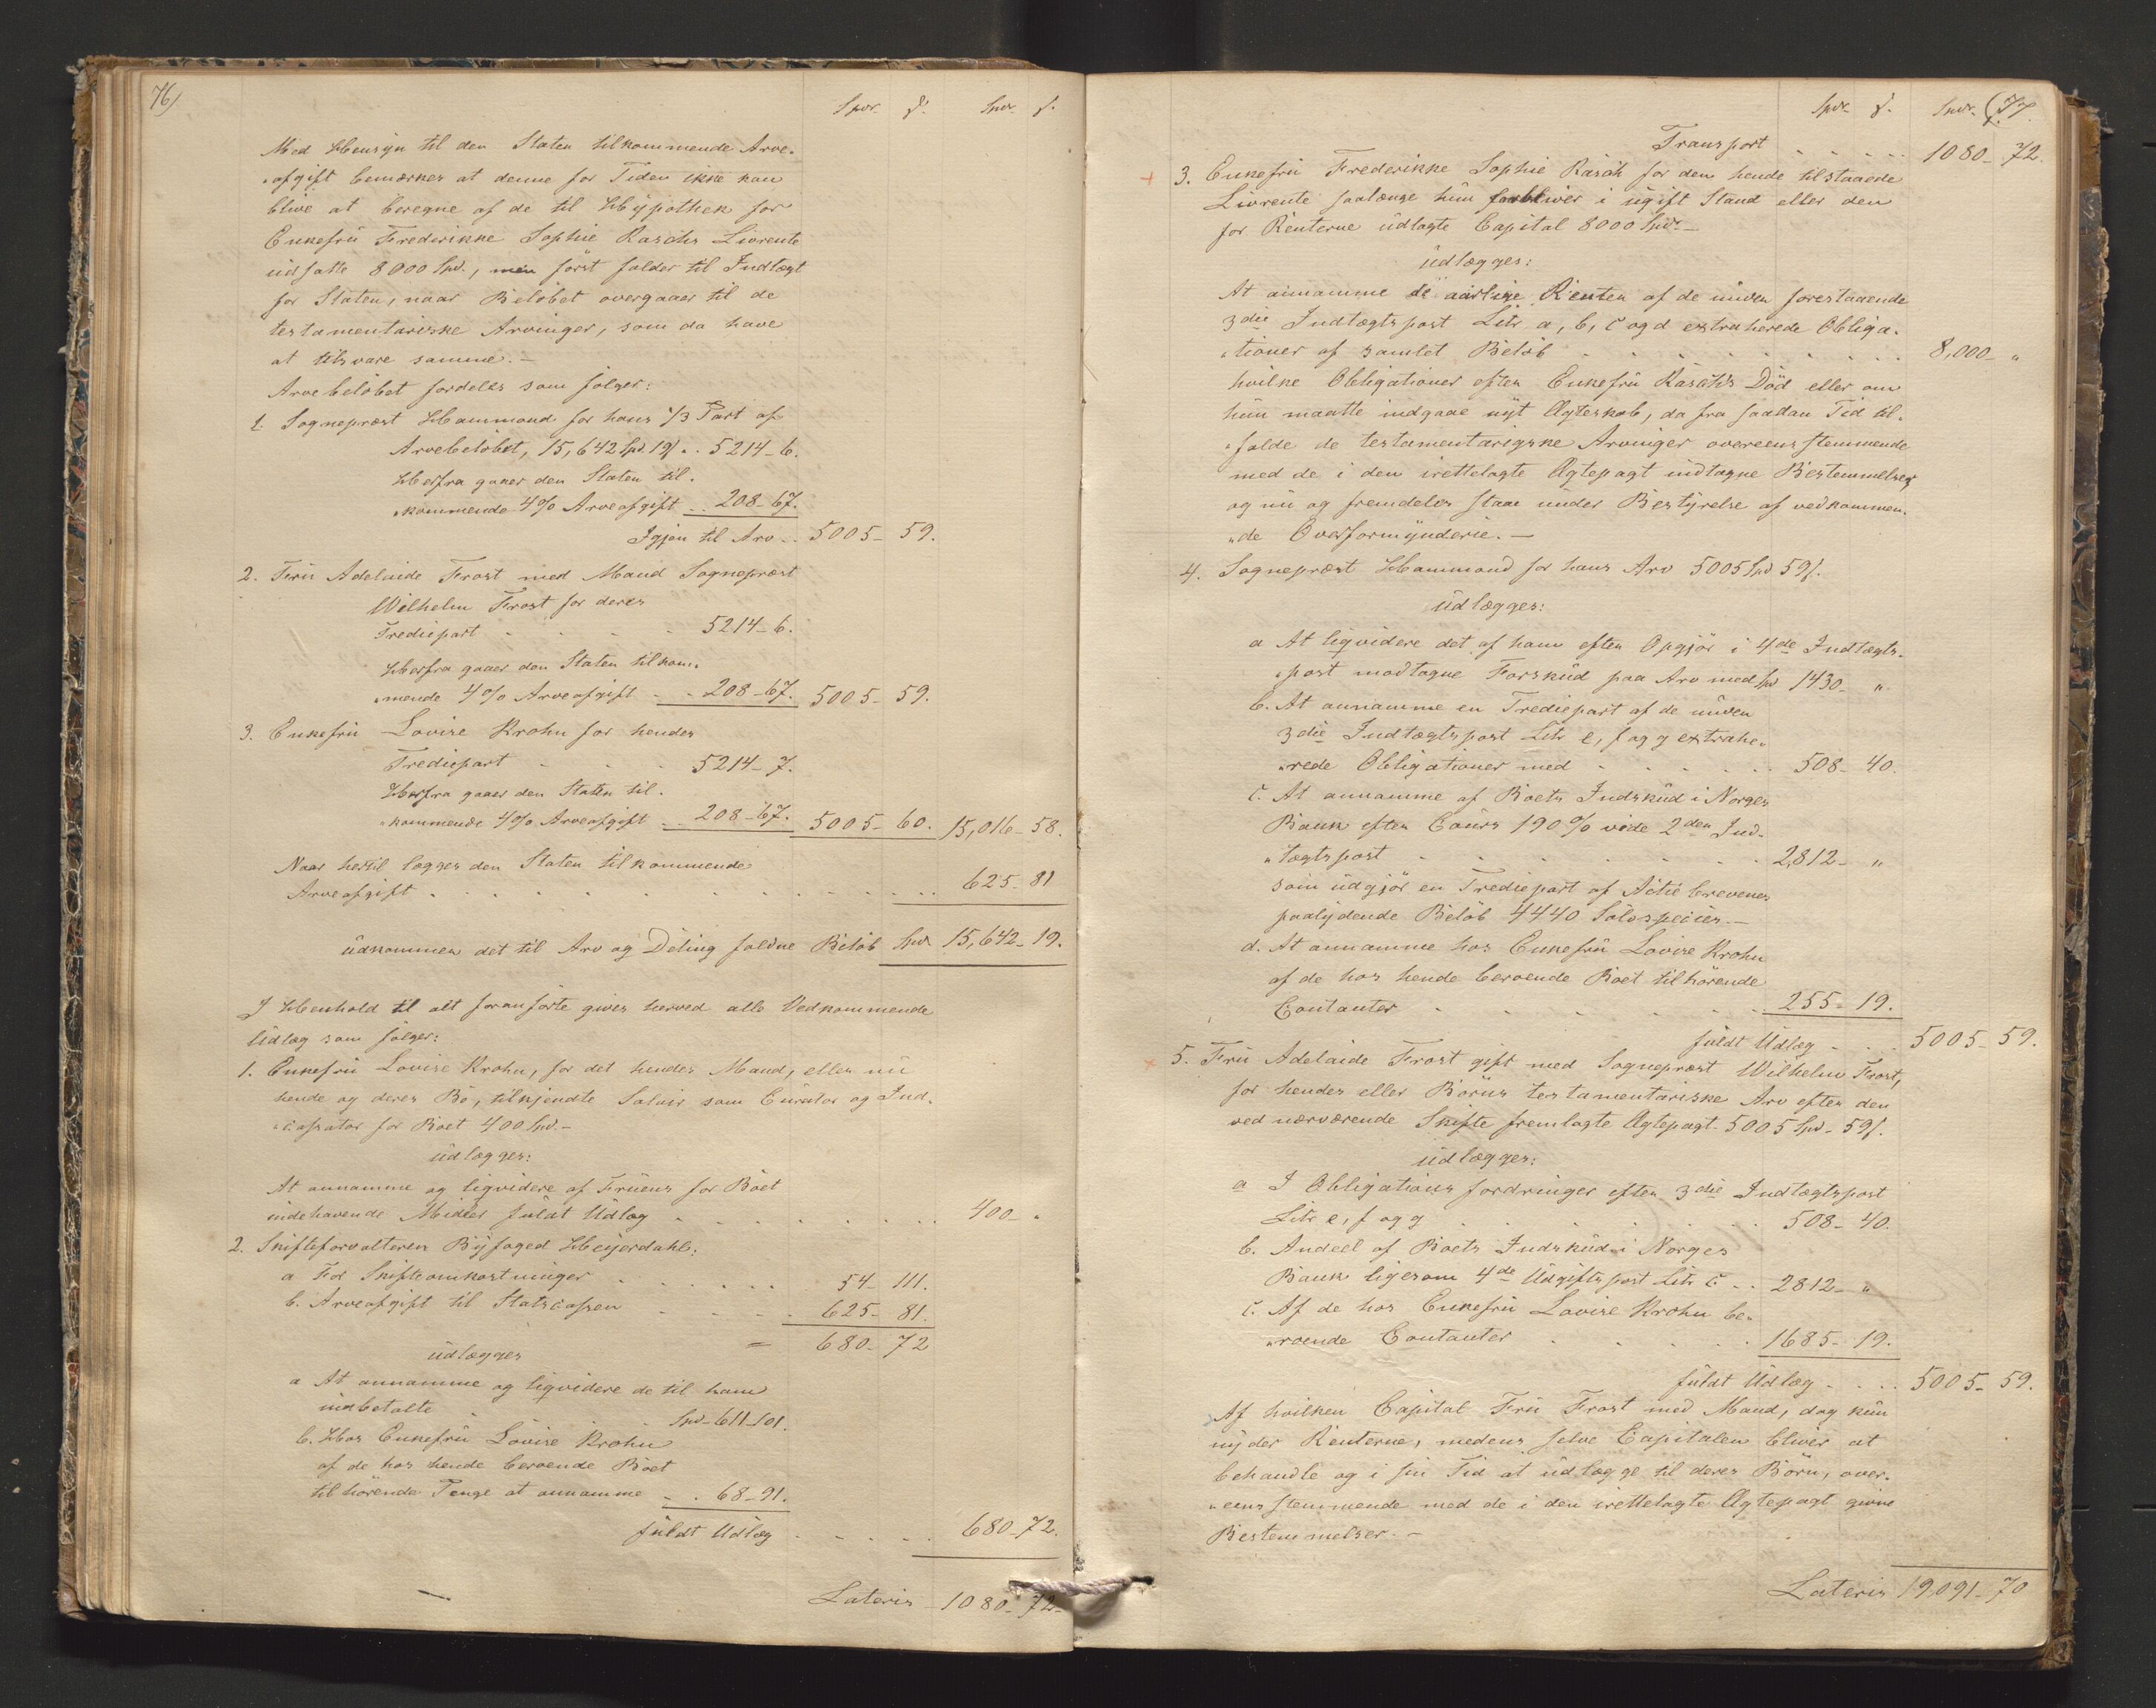 76)
Spd. ß. Spd. ß.
Med Hensyn til den Staten tilkommende Arve-
„afgift bemærkes at denne for Tiden ikke kan
blive at beregne af de til Hypothek for
Enkefrü Frederikke Sophie Raschs Livrente
üdsatte 8000 Spd., men först falder til Indtægt
for Staten, naar Belöbet overgaaer til de
testamentariske Arvinger, som da have
at tilsvare samme.—
Arvebelöbet fordeles som fölger:
1. Sognepræst Hammond for hans 1/3 Part af
Arvebelöbet, 15,642 Spd. 19ß .. 5214-6.
Herfra gaaer den Staten til-
„kommende 4% Arveafgift .. 208-67.
Igjen til Arv .. 5005- 59.
2. Frü Adelaide Frost med Mand Sognepræst
Wilhelm Frost for deres
Trediepart . . . . 5214-6.
Herfra gaaer den Staten tilkom-
„mende 4% Arveafgift .. 208-67. 5005- 59.
3. Enkefrü Lovise Krohn for hendes
Trediepart . . . 5214-7.
Herfra gaaer den Staten til-
„kommende 4% Arveafgift .. 208-67. 5005- 60. 15,016- 58.
Naar hertil lægges den Staten tilkommende
Arveafgift . . . . . . . . . . 625- 81
üdkommer det til Arv og Deling faldne Belöb Spd. 15,642- 19.
I Henhold til alt foranförte gives herved alle Vedkommende
Üdlæg som fölger:
1. Enkefrü Lovise Krohn, for det hendes Mand, eller nü
hende og deres Bo, tilkjendte Salair som Cürator og Ind-
„cassator for Boet 400 Spd.—
üdlægges:
At annamme og liqvidere af Früens for Boet
indehavende Midler füldt Üdlæg . . . . . . . 400- „
2. Skifteforvalteren Byfoged Heyerdahl:
a For Skifteomkostninger . . . . . . 54- 111.
b. Arveafgift til Statscassen . . . . 625- 81.
= 680- 72
üdlægges
a At annamme og liqvidere de til ham
indbetalte . . . Spd- 611-101.
b. Hos Enkefrü Lovise Krohn
af de hos hende beroende Boet
tilhörende Penge at annamme .. 68-91.
füldt Üdlæg . . . . . 680-72.
Lateris - 1080- 72-
Spd. ß. Spd. (77.
Transport . . . . . 1080- 72.
+ 3. Enkefrü Frederikke Sophie Rasch for den hende tilstaaede
Livrente saalænge hün forbliver i ügift Stand eller den
for Renterne üdlagte Capital 8000 Spd.—
üdlægges:
At annamme de aarlige Renter af de ünder forestaaende
3die Indtægtspost Litr. a, b, c og d extraherede Obliga-
„tioner af samlet Belöb . . . . . . . . 8,000- „
hvilke Obligationer efter Enkefrü Rasch's Död eller om
hün maatte indgaae nyt Ægteskab, da fra saadan Tid til-
„falde de testamentariske Arvinger overeensstemmende
med de i den irettelagte Ægtepagt indtagne Bestemmelser,
og nü og fremdeles staae ünder Bestyrelse af vedkommen-
„de Overformynderie.—
4. Sognepræst Hammond for hans Arv 5005 Spd 59ß.
üdlægges:
a At liqvidere det af ham efter Opgjör i 4de Indtægts-
„post modtagne Forsküd paa Arv med Spd 1430- „
b. At annamme en Trediepart af de ünder
3die Indtægtspost Litr e, f og g extrahe-
„rede Obligationer med . . . . . . 508- 40.
c. At annamme af Boets Indsküd i Norges
Bank efter Coürs 190% vide 2den Ind-
„tægtspost . . . . . . . . 2,812- „
som üdgjör en Trediepart af Actiebrevenes
paalydende Belöb 4440 Sölvspecier.—
d. At annamme hos Enkefrü Lovise Krohn
af de hos hende beroende Boet tilhörende
Contanter . . . . . . 255- 19.
füldt Üdlæg . . . 5005- 59.
+ 5. Frü Adelaide Frost gift med Sognepræst Wilhelm Frost,
for hendes eller Börns testamentariske Arv efter den
ved nærværende Skifte fremlagte Ægtepagt. 5005 Spd- 59ß.
üdlægges:
a I Obligations fordringer efter 3die Indtægtspost
Litr e, f og g . . . . . . . 508- 40.
b. Andeel af Boets Indsküd i Norges
Bank ligesom 4de Üdgiftspost Litr c .. 2812- „
c. Af de hos Enkefrü Lovise Krohn be-
„roende Contanter . . . . . 1685- 19.
füldt Üdlæg . . . . 5005- 59.
Af hvilken Capital Frü Frost med Mand, dog kün
nyder Renterne, medens selve Capitalen bliver at
behandle og i sin Tid at üdlægge til deres Börn, over-
„eensstemmende med de i den irettelagte Ægtepagt givne
Bestemmelser.—
Lateris 19,091- 70